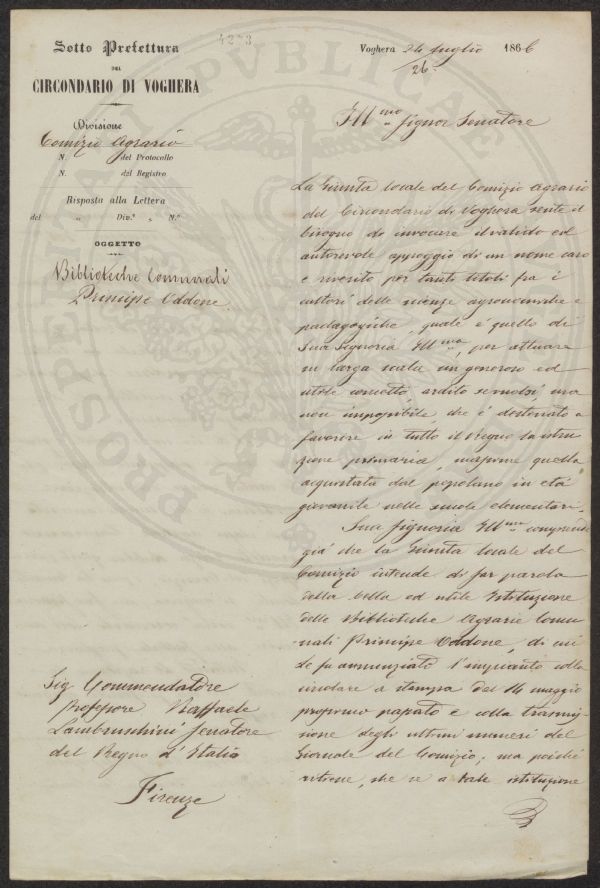 4273
Sotto Prefettura
DEL
CIRCONDARIO DI VOGHERA
Divisione
Comizio Agrario
N. del Protocollo
N. del Registro
Risposta alla Lettera
del " Div.e " N.o
OGGETTO
Bibliotiche Comunali
Principe Oddone.
Voghera 24 luglio 1866
26.
Ill.mo Signor Senatore
La Giunta locale del Comizio Agrario
del Circondario di Voghera sente il
bisogno di invocare il valido ed
autorevole appoggio di un nome caro
e riverito per tanti titoli fra i
cultori delle scienze agronomiche e
pedagogiche, quale è quello di
Sua Signoria Ill.ma, per attuare
in larga scala un generoso ed
utile concetto, ardito se vuolsi, ma
non impossibile, che è destinato a
favorire in tutto il Regno la istru
zione primaria, massime quella
acquistata dal popolano in età
giovanile nelle scuole elementari.
Sua Signoria Ill.ma comprende
già che la Giunta locale del
Comizio intende di far parola
della bella ed utile Istituzione
delle Biblioteche Agrarie Comu
nali Principe Oddone, di cui
Le fu annunziato l'impianto colla
circolare a stampa del 14 maggio
prossimo passato e colla trasmis
sione degli ultimi numeri del
Giornale del Comizio; ma poichè
ritiene, che se a tale istituzione
Sig Commendatore
Professore Raffaele
Lambruschini Senatore
del Regno d'Italia
Firenze
PROSPERITATI PUBLICAE